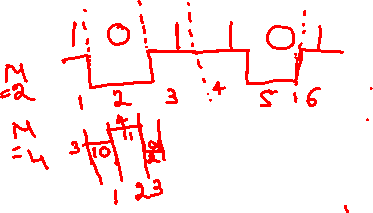 1 0 1 1 0 1
M
=2
1 2 3 4 5 6
M
=4
3 10 4 11
1 2 3